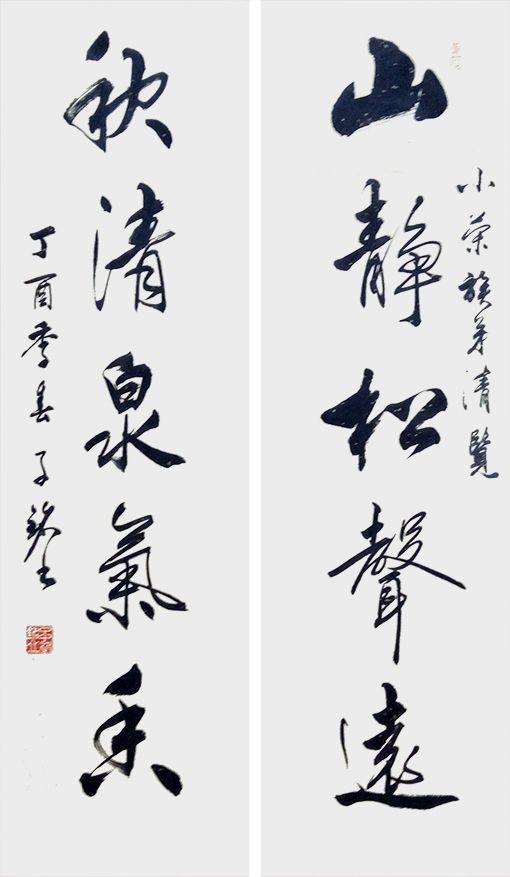 小荣族弟清覽
山靜松聲遠
秋清泉氣香
丁酉季春子